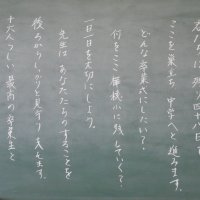 ここを巣立ち 中学へと進みます。
どんな卒業式にしたい？…
何をここ 舞桜小に残していく？
一日一日を大切にしよう。
先生は あなたたちのすることを
後ろからしっかりと見守り支えます。
十六人らしい最高の卒業生と